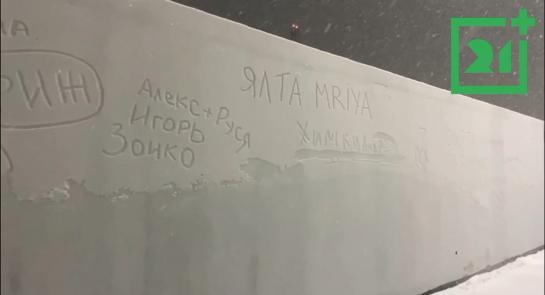 НА
РИЖ
Алекс+Руся
Игорь
Зоико
ЯЛТА MRIYA
21+